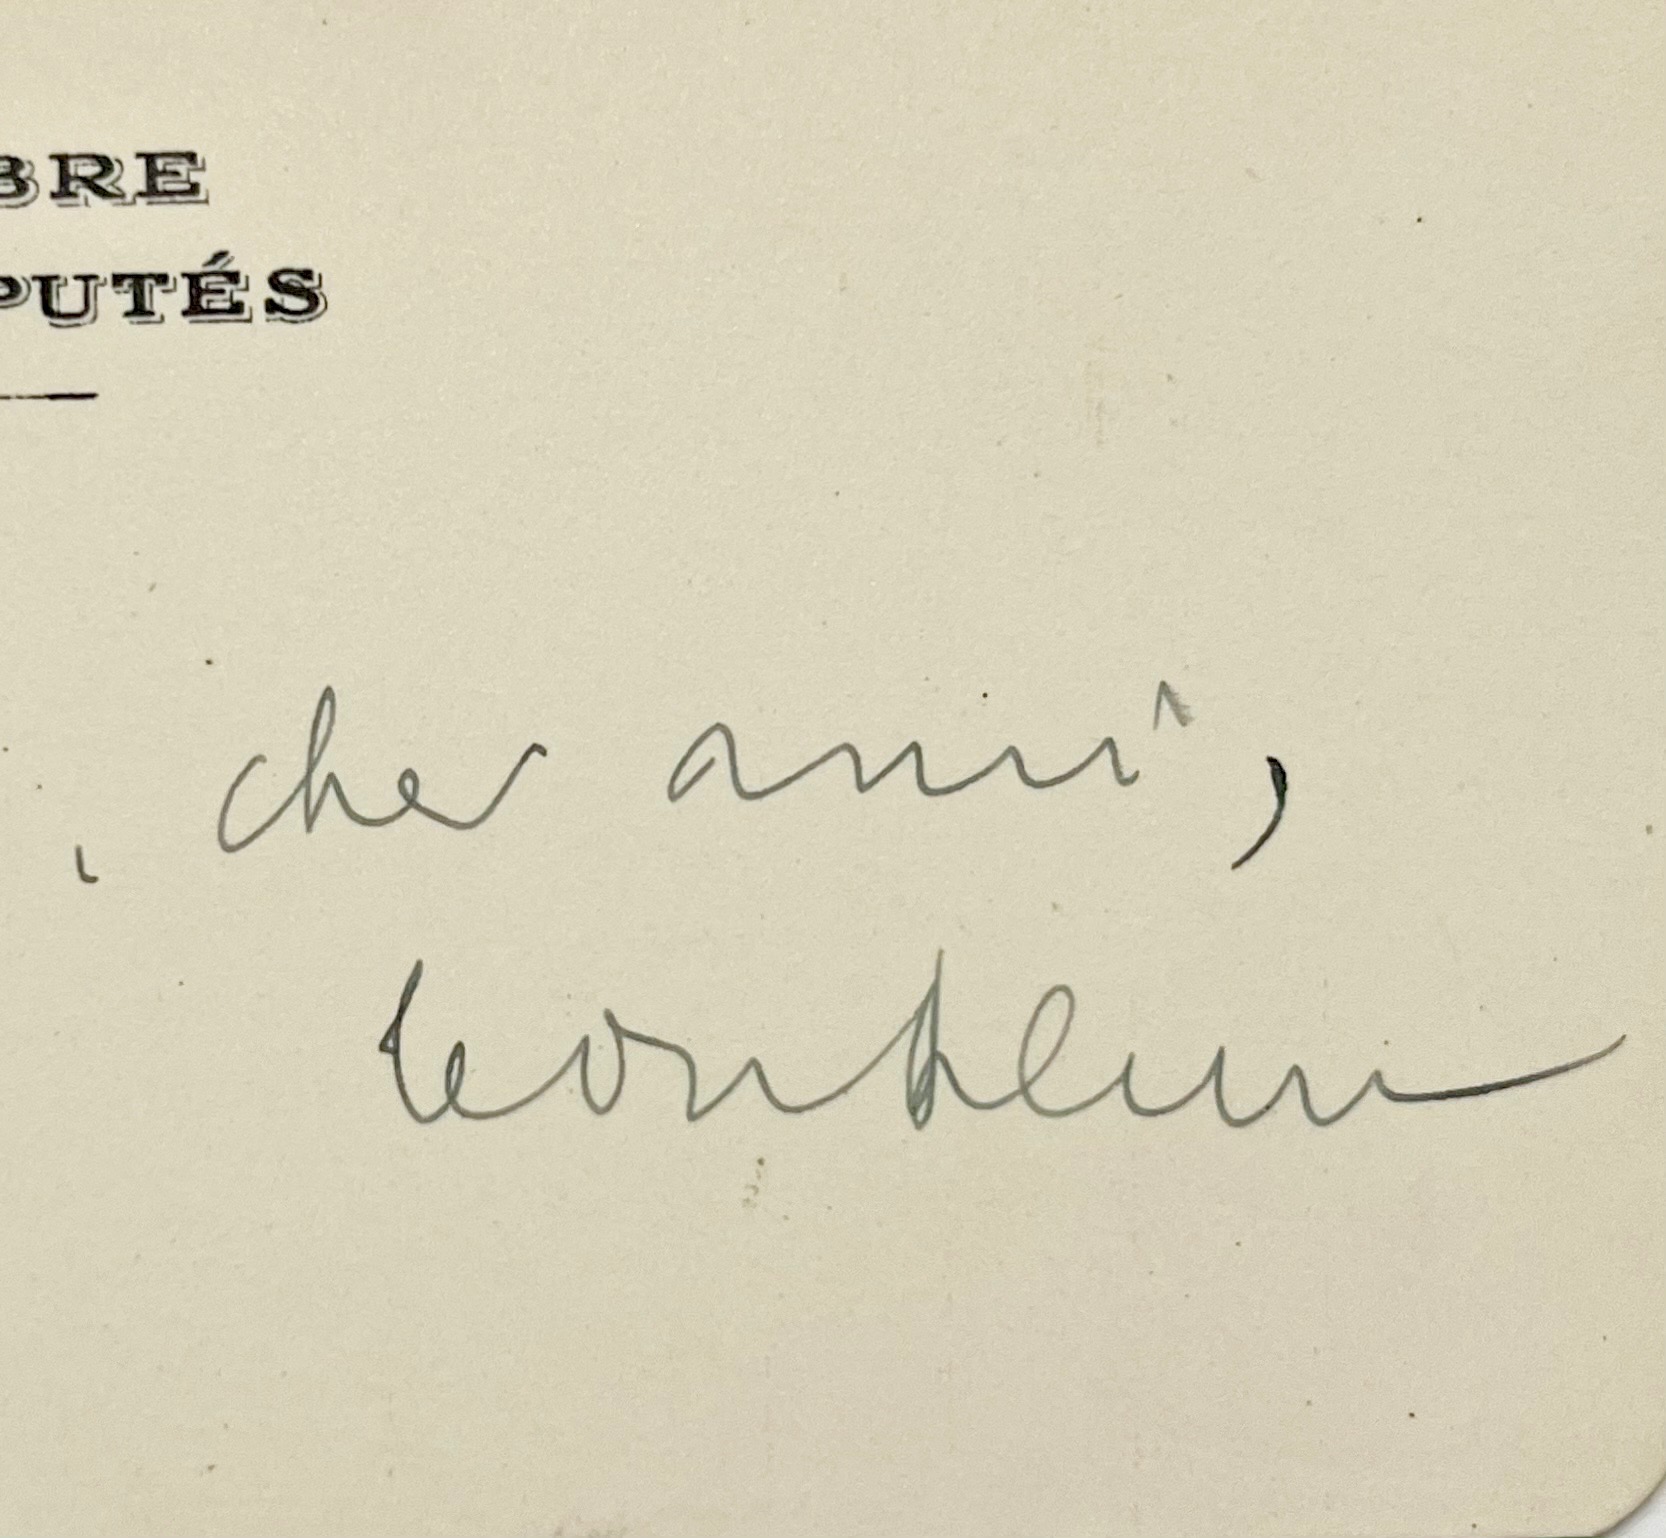 BRE
PUTÉS
, cher ami,
Leon Blum